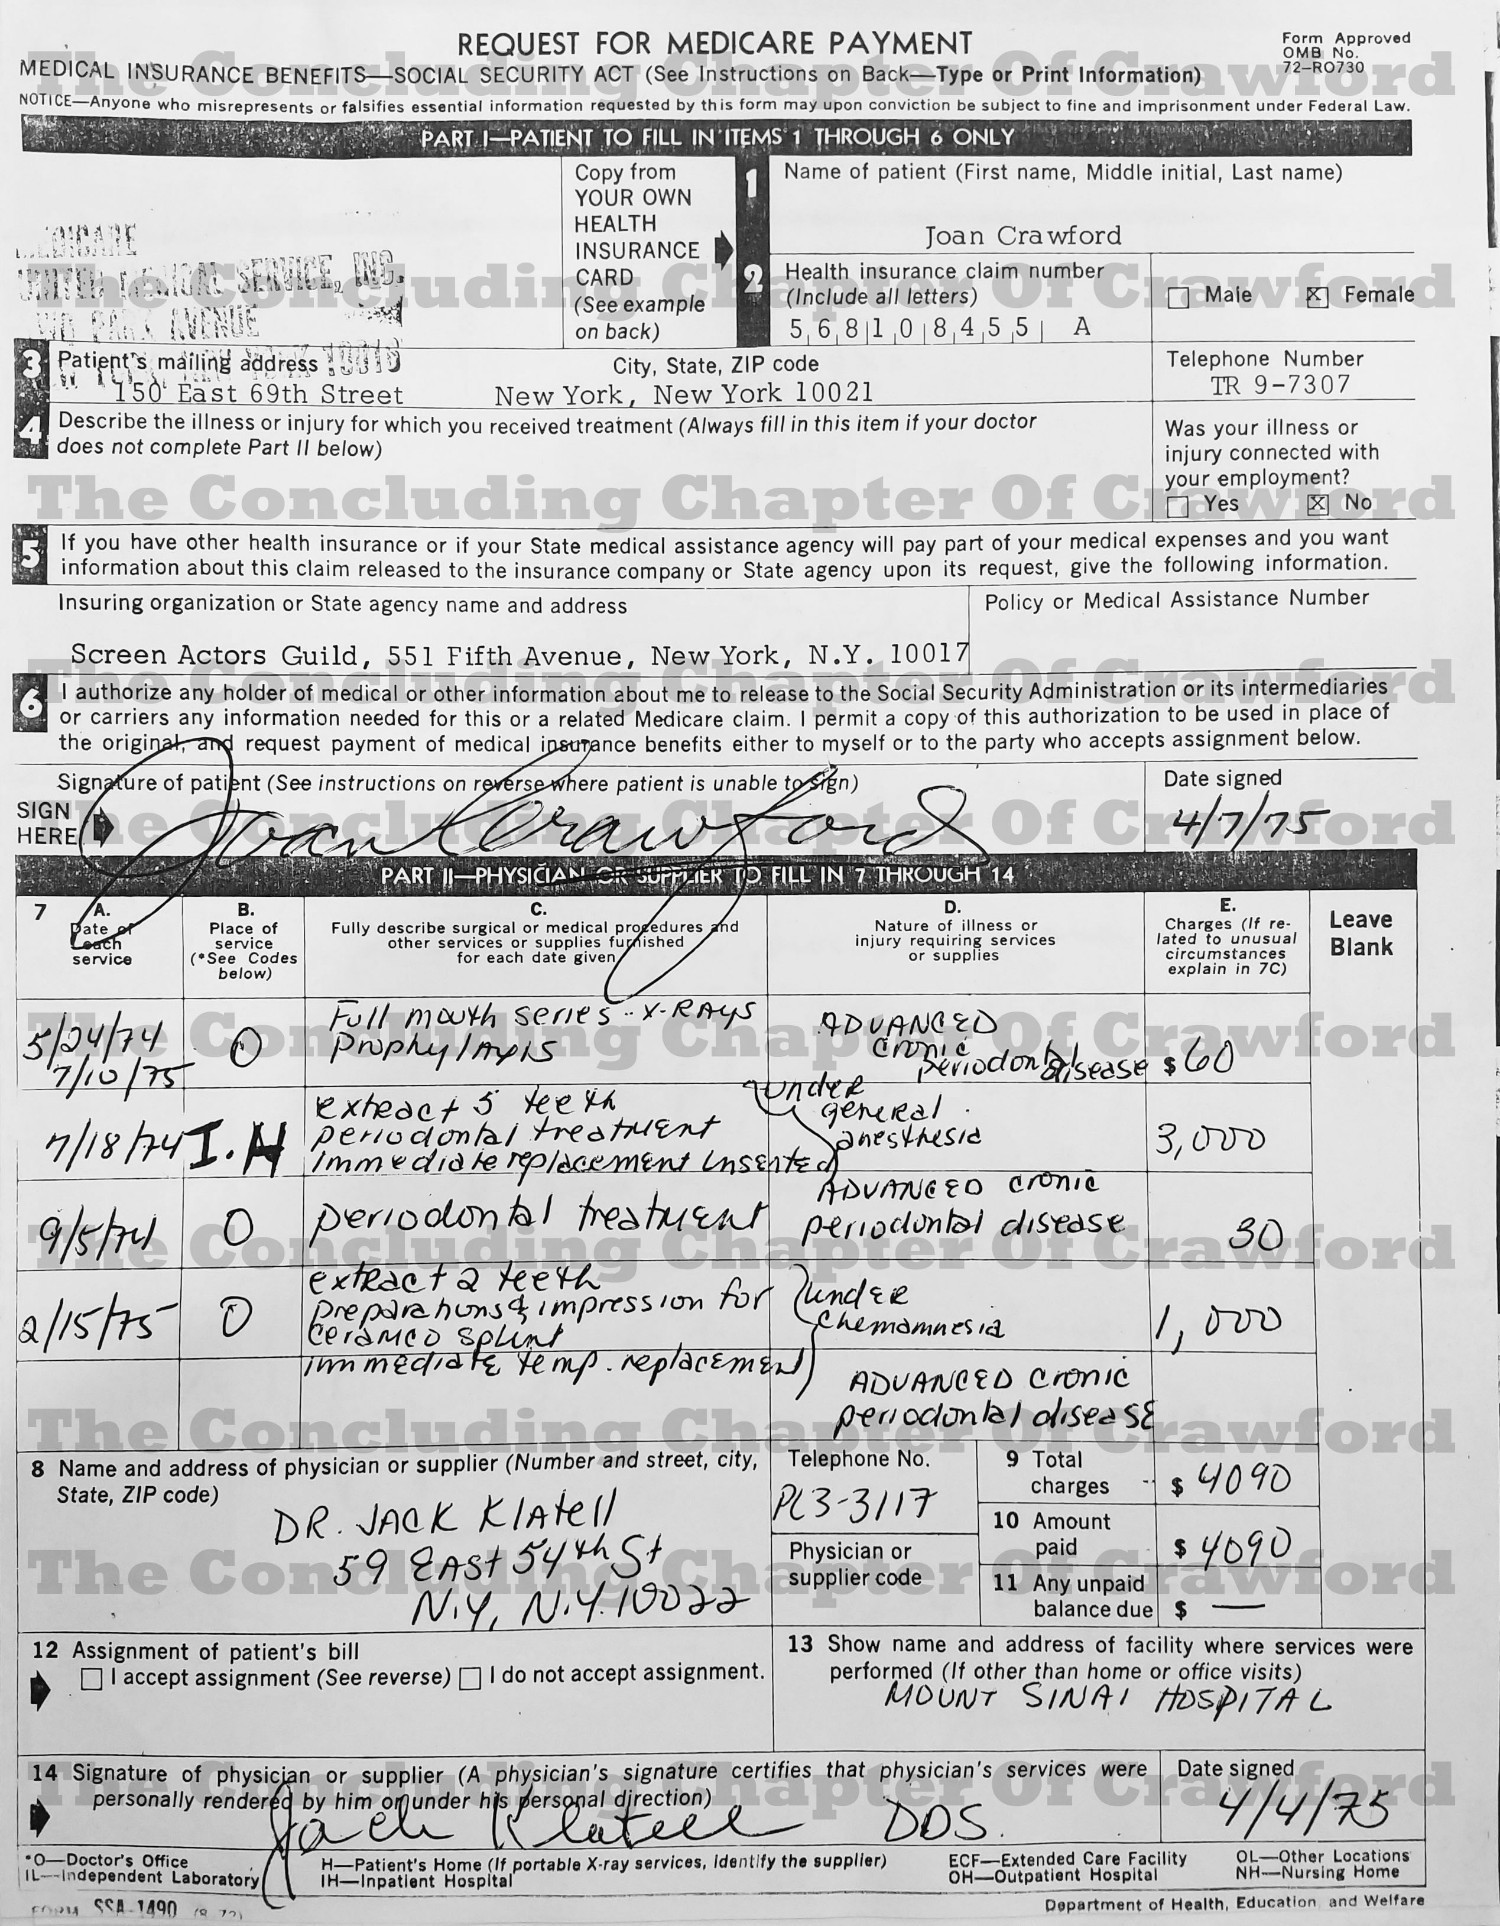 REQUEST FOR MEDICARE PAYMENT
Form Approved
OMB No.
72-RO730
MEDICAL INSURANCE BENEFITS—SOCIAL SECURITY ACT (See Instructions on Back—Type or Print Information)
NOTICE—Anyone who misrepresents or falsifies essential information requested by this form may upon conviction be subject to fine and imprisonment under Federal Law.
PART I—PATIENT TO FILL IN ITEMS 1 THROUGH 6 ONLY
MEDICARE
UNITED MEDICAL SERVICE, INC.
TWO PARK AVENUE
NEW YORK, NEW YORK 10016
Copy from
YOUR OWN
HEALTH
INSURANCE
CARD
(See example
on back)
1 Name of patient (First name, Middle initial, Last name)
Joan Crawford
2 Health insurance claim number
(Include all letters)
5 6 8 1 0 8 4 5 5 A
Male
x Female
3 Patient's mailing address
City, State, ZIP code
Telephone Number
150 East 69th Street New York, New York 10021
TR 9-7307
4 Describe the illness or injury for which you received treatment (Always fill in this item if your doctor
does not complete Part II below)
Was your illness or
injury connected with
your employment?
Yes x No
5 If you have other health insurance or if your State medical assistance agency will pay part of your medical expenses and you want
information about this claim released to the insurance company or State agency upon its request, give the following information.
Insuring organization or State agency name and address
Policy or Medical Assistance Number
Screen Actors Guild, 551 Fifth Avenue, New York, N.Y. 10017
6 I authorize any holder of medical or other information about me to release to the Social Security Administration or its intermediaries
or carriers any information needed for this or a related Medicare claim. I permit a copy of this authorization to be used in place of
the original, and request payment of medical insurance benefits either to myself or to the party who accepts assignment below.
Signature of patient (See instructions on reverse where patient is unable to sign)
Date signed
SIGN
HERE
Joan Crawford
4/7/75
PART II—PHYSICIAN OR SUPPLIER TO FILL IN 7 THROUGH 14
7 A.
Date of
each
service
B.
Place of
service
(*See Codes
below)
C.
Fully describe surgical or medical procedures and
other services or supplies furnished
for each date given
D.
Nature of illness or
injury requiring services
or supplies
E.
Charges (If re-
lated to unusual
circumstances
explain in 7C)
Leave
Blank
5/24/74
7/10/75
O
Full mouth series - X-RAYS
Prophylaxis
ADVANCED
cronic
periodontal
disease
$ 60
7/18/74
I.H
extract 5 teeth
periodontal treatment
Immediate replacement inserted
under
general
anesthesia
3,000
9/5/74
O
periodontal treatment
ADVANCED cronic
periodontal disease
30
2/15/75
O
extract 2 teeth
preparations & impression for
ceramco splint
immediate temp. replacement
under
chemamnesia
1,000
ADVANCED cronic
periodontal disease
8 Name and address of physician or supplier (Number and street, city,
State, ZIP code)
DR. JACK Klatell
59 EAST 54th St
N.Y, N.Y. 10022
Telephone No.
PL3-3117
Physician or
supplier code
9 Total
charges $ 4090
10 Amount
paid $ 4090
11 Any unpaid
balance due $ —
12 Assignment of patient's bill
I accept assignment (See reverse) I do not accept assignment.
13 Show name and address of facility where services were
performed (If other than home or office visits)
MOUNT SINAI HOSPITAL
14 Signature of physician or supplier (A physician's signature certifies that physician's services were
personally rendered by him or under his personal direction)
Jack Klatell DDS.
Date signed
4/4/75
*O—Doctor's Office
IL—Independent Laboratory
H—Patient's Home (If portable X-ray services, identify the supplier)
IH—Inpatient Hospital
ECF—Extended Care Facility
OH—Outpatient Hospital
OL—Other Locations
NH—Nursing Home
FORM SSA-1490 (8 72)
Department of Health, Education and Welfare
The Concluding Chapter Of Crawford
The Concluding Chapter Of Crawford
The Concluding Chapter Of Crawford
The Concluding Chapter Of Crawford
The Concluding Chapter Of Crawford
The Concluding Chapter Of Crawford
The Concluding Chapter Of Crawford
The Concluding Chapter Of Crawford
The Concluding Chapter Of Crawford
The Concluding Chapter Of Crawford
The Concluding Chapter Of Crawford